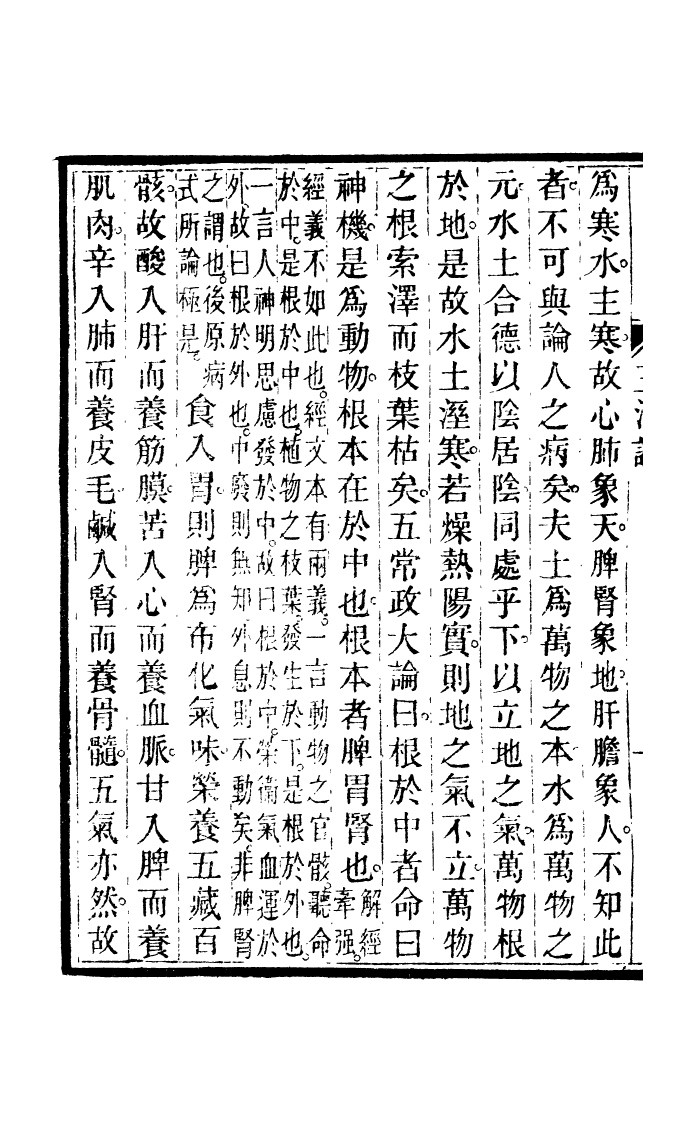 爲寒水。主寒。故心肺象天。脾腎象地。肝膽象人。不知此
者。不可與論人之病矣。夫土爲萬物之本水爲萬物之
元。水土合德以陰居陰同處乎下。以立地之氣。萬物根
於地。是故水土溼寒。若燥熱陽實。則地之氣不立。萬物
之根索澤而枝葉枯矣。五常政大論曰。根於中者命曰
神機。是爲動物。根本在於中也。根本者脾胃腎也。解經牽强。
經義不如此也。經文本有兩義。一言動物之官骸。聽命
於中。是根於中也。植物之枝葉。發生於下。是根於外也。
一言人神明思慮發於中。故曰根於中。榮衞氣血運於
外。故曰根於外也。中廢則無知。外息則不動矣。非脾腎
之謂也。後原病
式所論極是。
食入胃。則脾爲布化氣味。榮養五藏百
骸。故酸入肝而養筋膜。苦入心而養血脈。甘入脾而養
肌肉。辛入肺而養皮毛。鹹入腎而養骨髓。五氣亦然。故